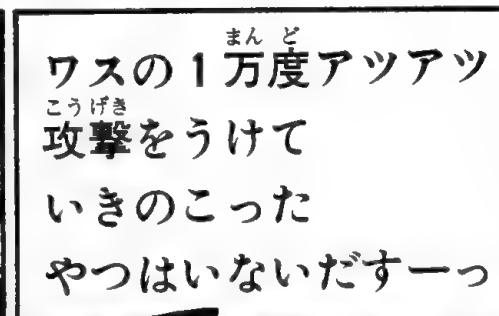 ワスの1万度アツアツ
攻撃をうけて
いきのこった
やつはいないだすーっ